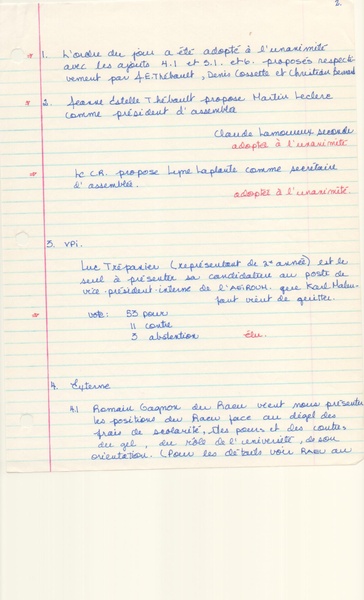 2.
* 1. L'ordre du jour a été adopté à l'unanimité
avec les ajouts 4.1 et 5.1. et 6. proposés respecti-
vement par J.E. Thébault, Denis Cossette et Christian
* 2. Jeanne Estelle Thébault propose Martin Leclerc
comme président d'assemblé
Claude Lamoureux seconde
adopté à l'unanimité
* Le C.R. propose Lyne Laplante comme secrétaire
d'assemblé.
adoptée à l'unanimité.
3. VPi.
Luc Trépanier (représentant de 2e année) est le
seul à présenter sa candidature au poste de
vice-président interne de l' que Karl
vient de quitter.
* vote: 53 pour
11 contre
3 abstention élu.
4. Externe
4.1 Romain Gagnon du Raeu vient nous présenter
les positions du Raeu face au dégel des
frais de scolarité, des pours et des contres
du gel, du rôle de l'université, de son
orientation. (Pour les détails voir RAEU au